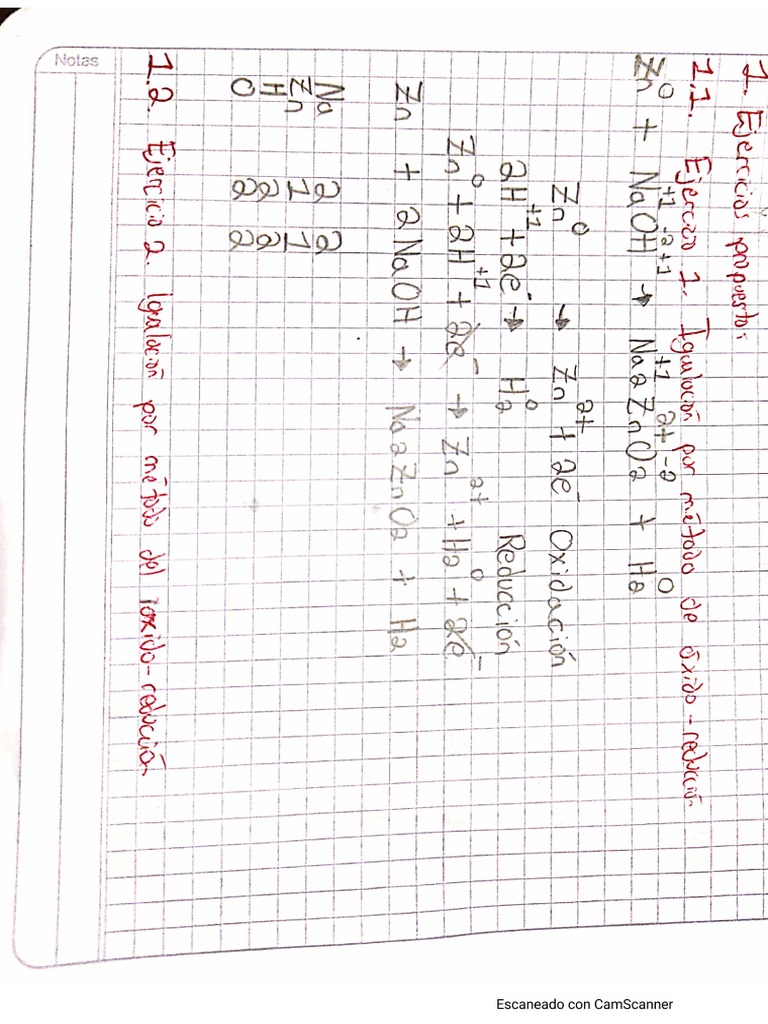 1. Ejercicios propuestos
1.1. Ejercicio 1. Igualación por método de óxido-reducción
Zn⁰ + Na⁺¹O⁻²H⁺¹ → Na₂⁺¹Zn²⁺O₂⁻² + H₂⁰
Zn⁰ → Zn²⁺ + 2e⁻ Oxidación
2H⁺¹ + 2e⁻ → H₂⁰ Reducción
Zn⁰ + 2H⁺¹ + 2e⁻ → Zn²⁺ + H₂⁰ + 2e⁻
Zn + 2NaOH → Na₂ZnO₂ + H₂
Na 2 2
Zn 1 1
H 2 2
O 2 2
1.2. Ejercicio 2. Igualación por método del ioxido-reducción
Notas
Escaneado con CamScanner